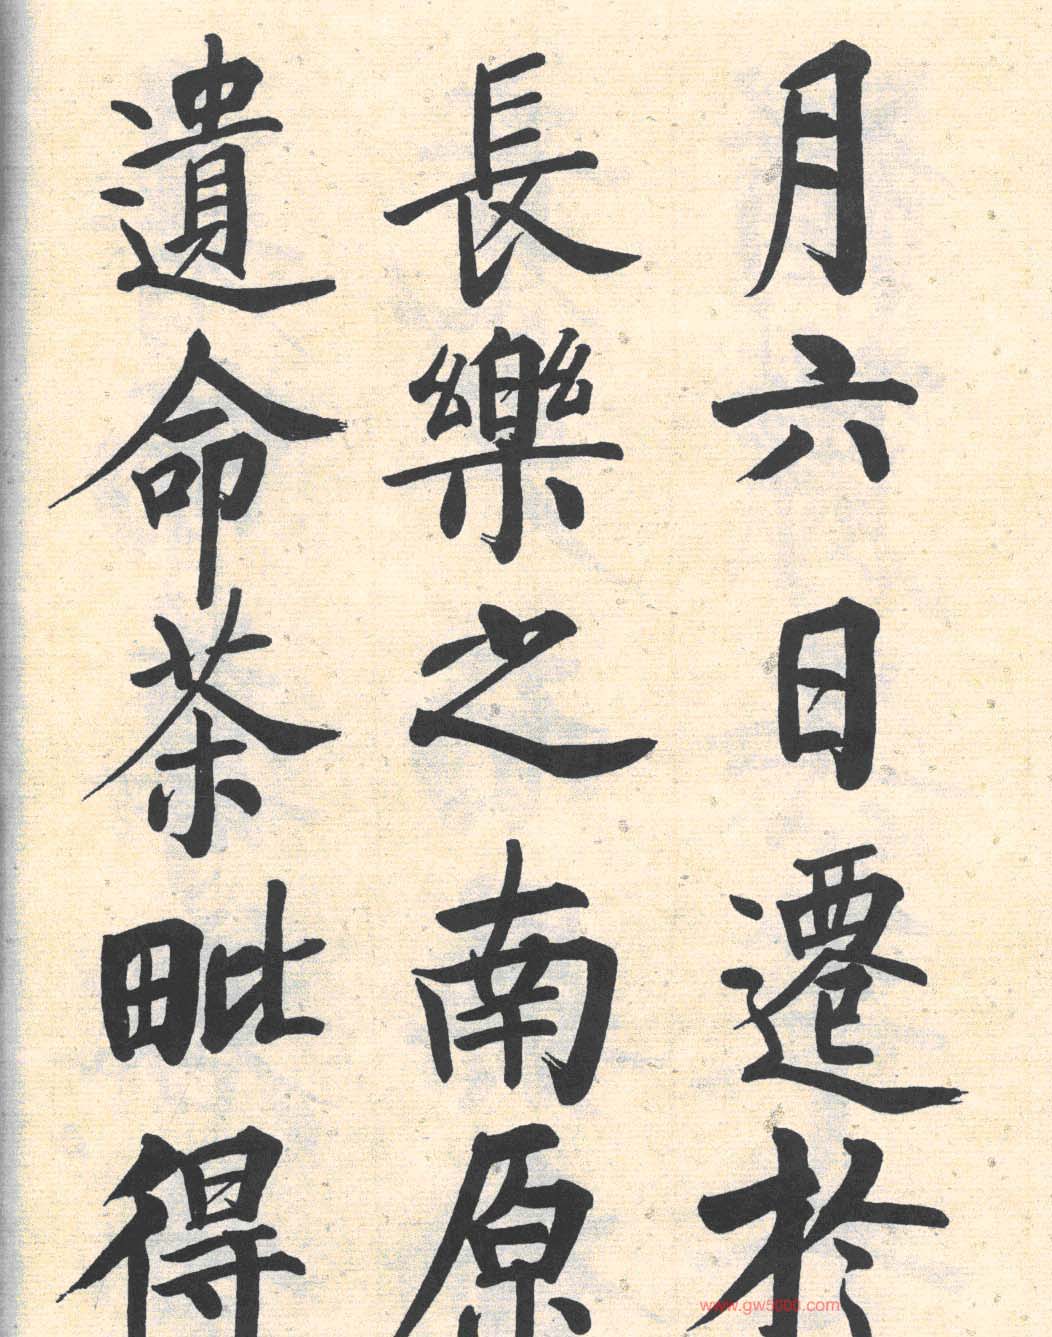 月六日遷於
長樂之南原
遺命茶毗得
www.gw5000.com